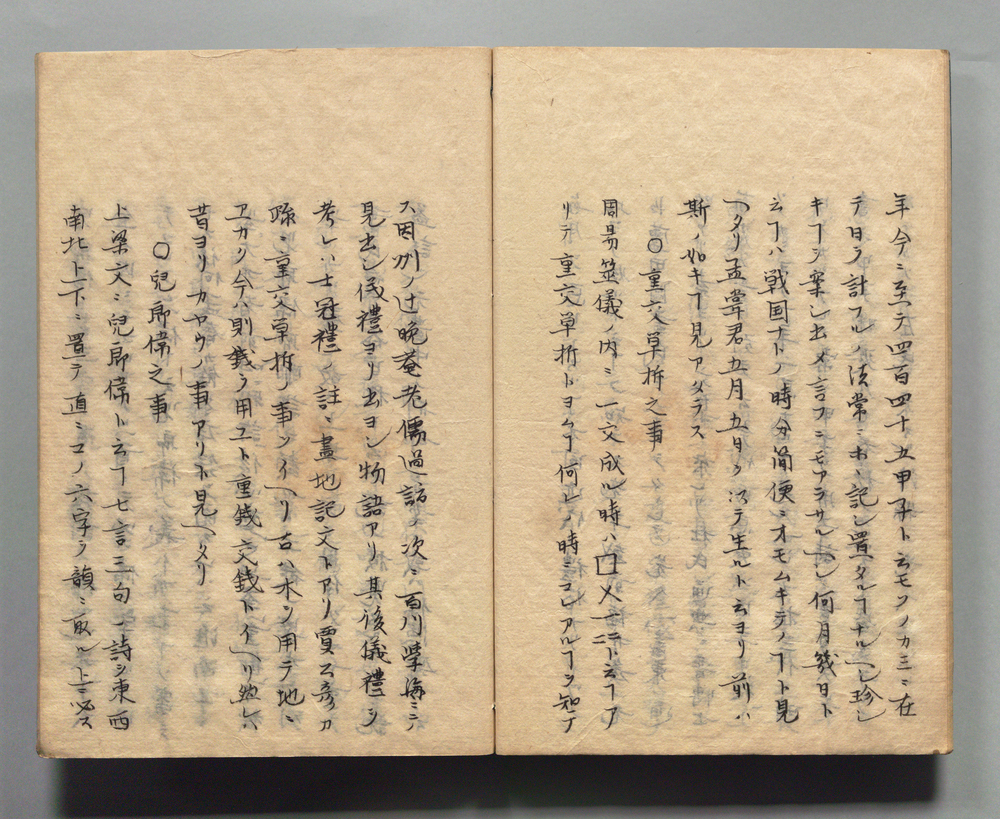 年今ニ至テ四百四十五甲子ト云モノカミニ在
テ日ヲ計フルノ法常ニホヽ記シ置タルヿナルヘシ珍シ
キヿヲ案シ出メ言フニモアラサルヘシ何月幾日ト
云ヿハ戦国ナトノ時分簡便ニオモムキテノヿト見
ヘタリ孟嘗君五月五日ヲ以テ生ルト云ヨリ前ハ
斯ノ如キヿ見アタラス
〇重交単拆之事
周易筮儀ノ内ニ一爻成ル時ハ囗乂一二ト云ヿア
リテ重交単拆トヨムヿ何レノ時ニコレアルヿヲ知テ
ス因州ノ辻晩菴老儒過訪ノ次ニ百川学海ニテ
見出シ儀禮ヨリ出ヨシ物語アリ其後儀禮ヲ
考レハ士冠禮ノ註ニ畫地記文トアリ賈公彦カ
疏ニ重交単拆ノ事ヲイヘリ古ハ木ヲ用テ地ニ
ヱカク今ハ則銭ヲ用ユト重銭交銭トイヘリ然レハ
昔ヨリカヤウノ事アリト見ヘタリ
〇兒郎偉之事
上梁文ニ兒郎偉ト云ヿ七言三句ノ詩ヲ東西
南北上下ニ置テ直ニコノ六字ヲ韻ニ取ル上ニ必ス